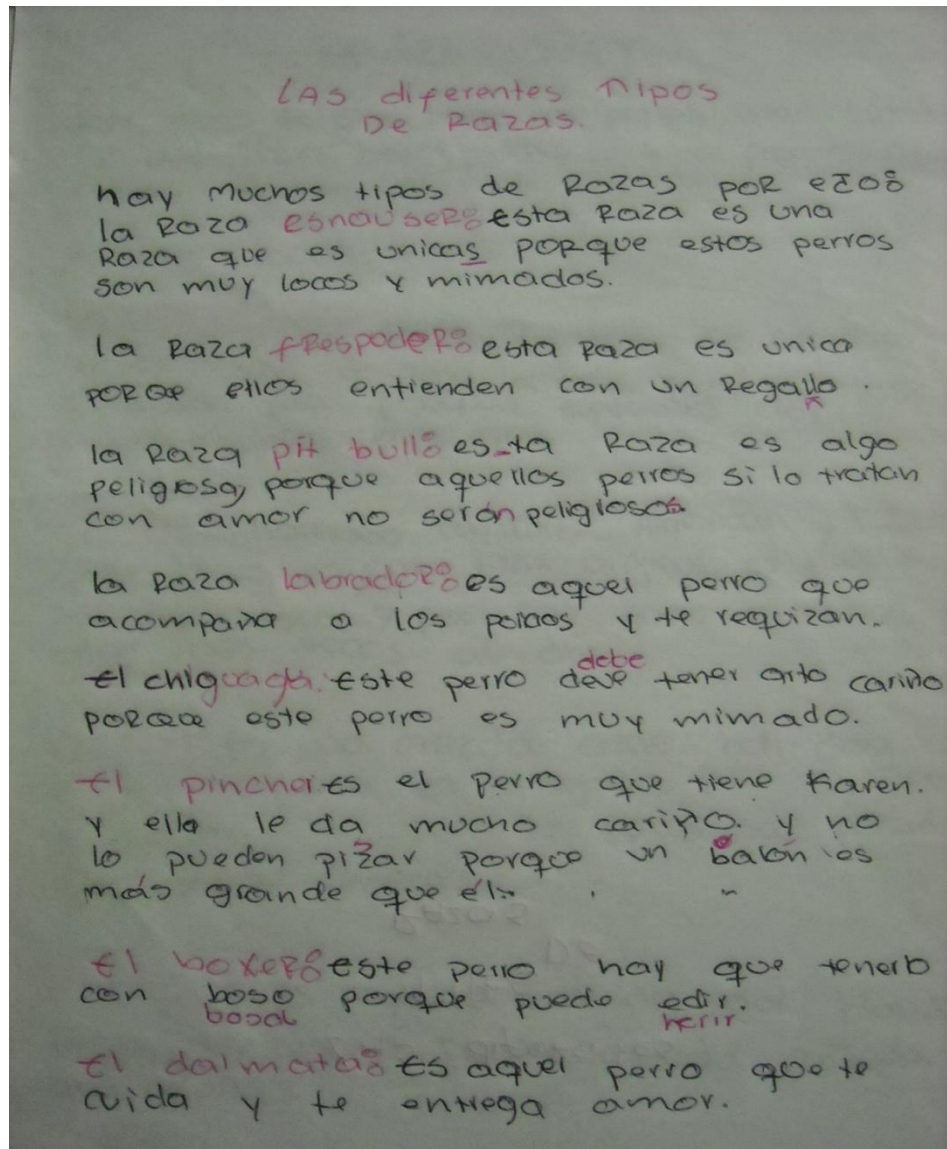 LAS diferentes Tipos
De Razas.
hay muchos tipos de Razas POR eZo:
la Raza esnauseR: esta Raza es una
Raza que es unicas PORque estos perros
son muy locos y mimados.
la Raza fRespodeR: esta Raza es unica
PORQe ellos entienden con un Regallo.
la Raza pit bull: es-ta Raza es algo
peligrosa, porque aquellos perros si lo tratan
con amor no serán peligrosos
la Raza labradoR: es aquel perro que
acompaña a los y te requizan.
debe
El chiguagua. Este perro deve tener arto cariño
PORQue este perro es muy mimado.
El pincher Es el perro que tiene Karen.
Y ella le da mucho cariño. y no
lo pueden pizar porque un balón es
más grande que él.
El boxeR: este perro hay que tenerlo
con boso porque puede edir.
bosal herir
El dalmata: Es aquel perro que te
cuida y te entrega amor.